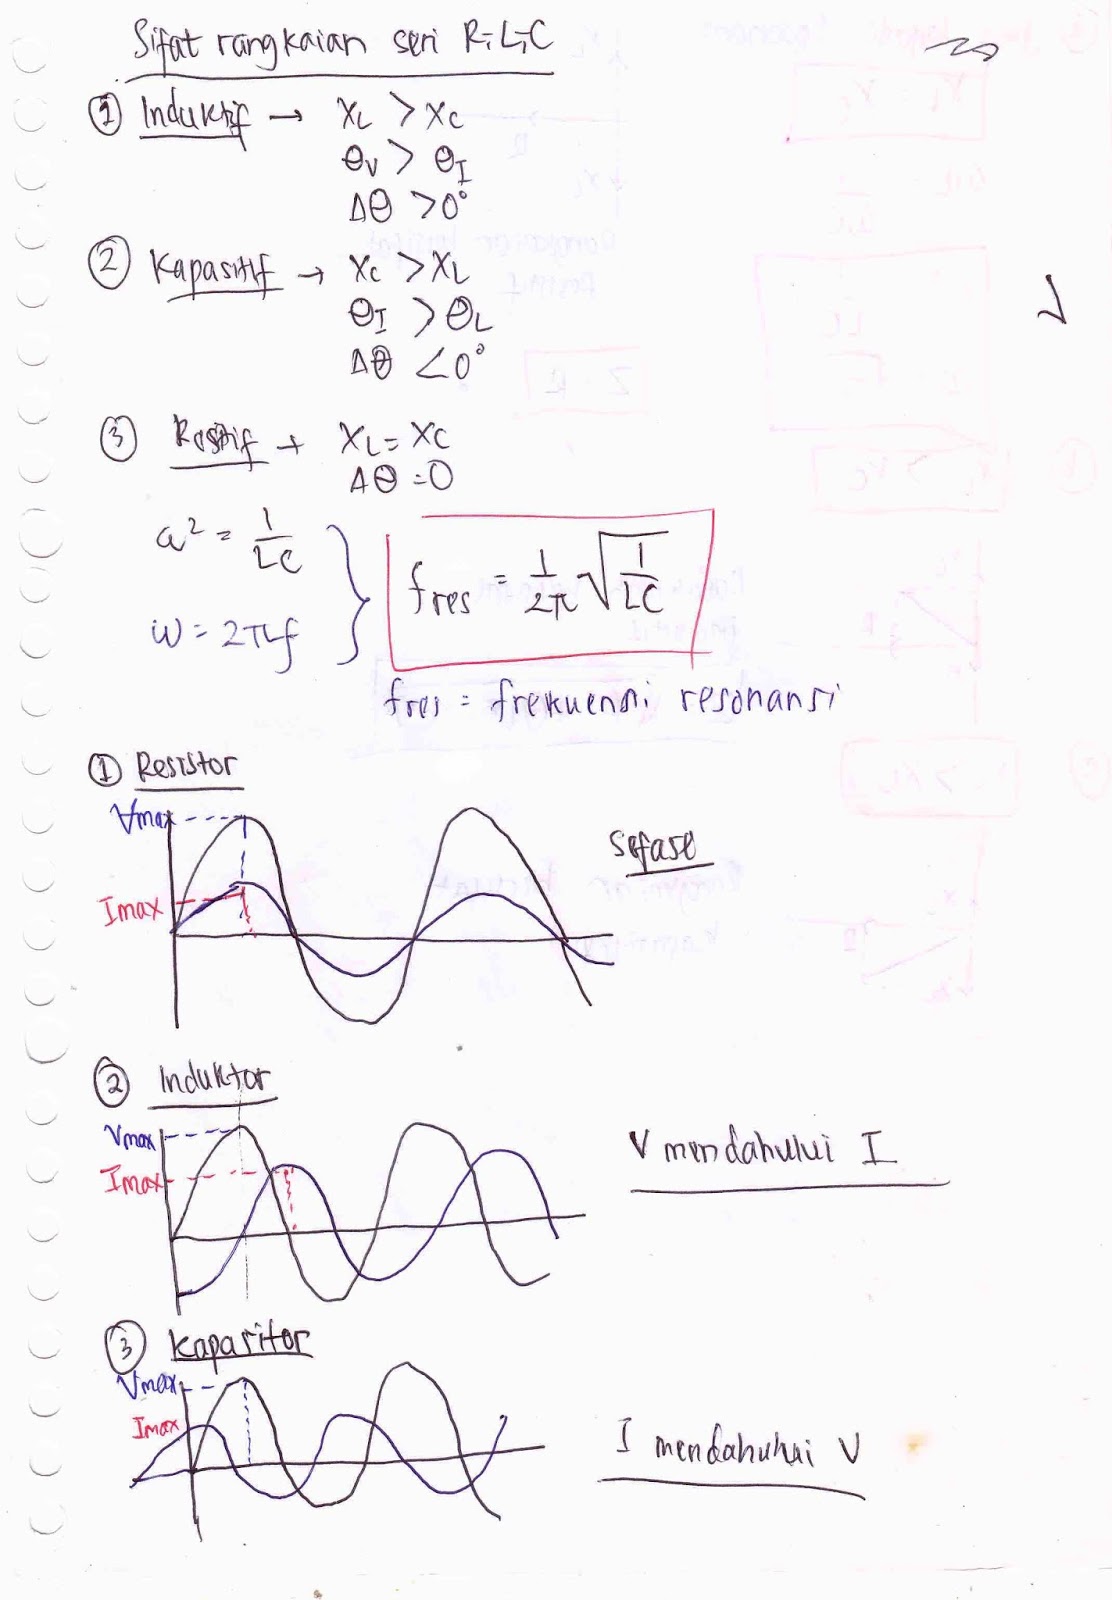 Sifat rangkaian seri R-L-C
① Induktif → XL > XC
θV > θI
Δθ > 0°
② Kapasitif → XC > XL
θI > θL
Δθ < 0°
③ Resitif → XL = XC
Δθ = 0
ω² = 1/LC
ω = 2πf
fres = 1/2π √1/LC
fres = frekuensi resonansi
① Resistor
Vmax
Imax
Sefase
② Induktor
Vmax
Imax
V mendahului I
③ Kapasitor
Vmax
Imax
I mendahului V